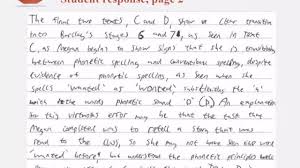 Student response, page 2
The final two texts, C and D, show a clear transition
into Barclay's stages 6 and 7, as seen in Text
C, as Megan begins to show signs that she is
between phonetic spelling and conventional spelling, despite
evidence of phonetic spelling, as seen when she
spells 'wanted' as 'wonted' substituting the 'a'
with the phonetic sound 'O' (D) An explanation
for this virtuous error may be that the task that
Megan completed was to retell a story that was
read to the class, so she may not have seen
'wanted' before but understood the phonetic principles